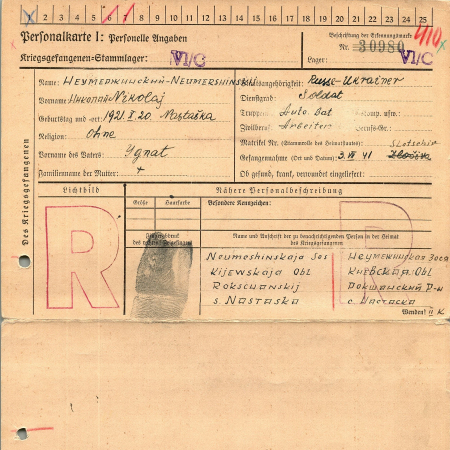 1 2 3 4 5 6 7 8 9 10 11 12 13 14 15 16 17 18 19 20 21 22 23 24 25
Personalkarte I: Personelle Angaben
Beschriftung der Erkennungsmarke
Nr. 30980
Kriegsgefangenen-Stammlager: VI/C
Lager: VI/C
Des Kriegsgefangenen
Name: Неумержицкий-Neumershinskij
Staatsangehörigkeit: Russe-Ukrainer
Vorname: Николай Nikolaj
Dienstgrad: Soldat
Geburtstag und -ort: 1921. X. 20. Nastaška
Religion: Ohne
Zivilberuf: Arbeiter Berufs-Gr.:
Matrikel Nr. (Stammrolle des Heimatstaates):
Vorname des Vaters: Ygnat
Gefangennahme (Ort und Datum): 3. VII 41
Familienname der Mutter: +
Ob gesund, krank, verwundet eingeliefert:
Lichtbild
Nähere Personalbeschreibung
Größe Haarfarbe Besondere Kennzeichen:
R R
Fingerabdruck
des rechten Zeigefingers
Name und Anschrift der zu benachrichtigenden Person in der Heimat
des Kriegsgefangenen
Neumeshinskaja Sos
Kijewskaja Obl
Rokschanskij
s. Nastaska
Киевская Обл
Рокшанский Р-н
с. Настаска
Wenden!